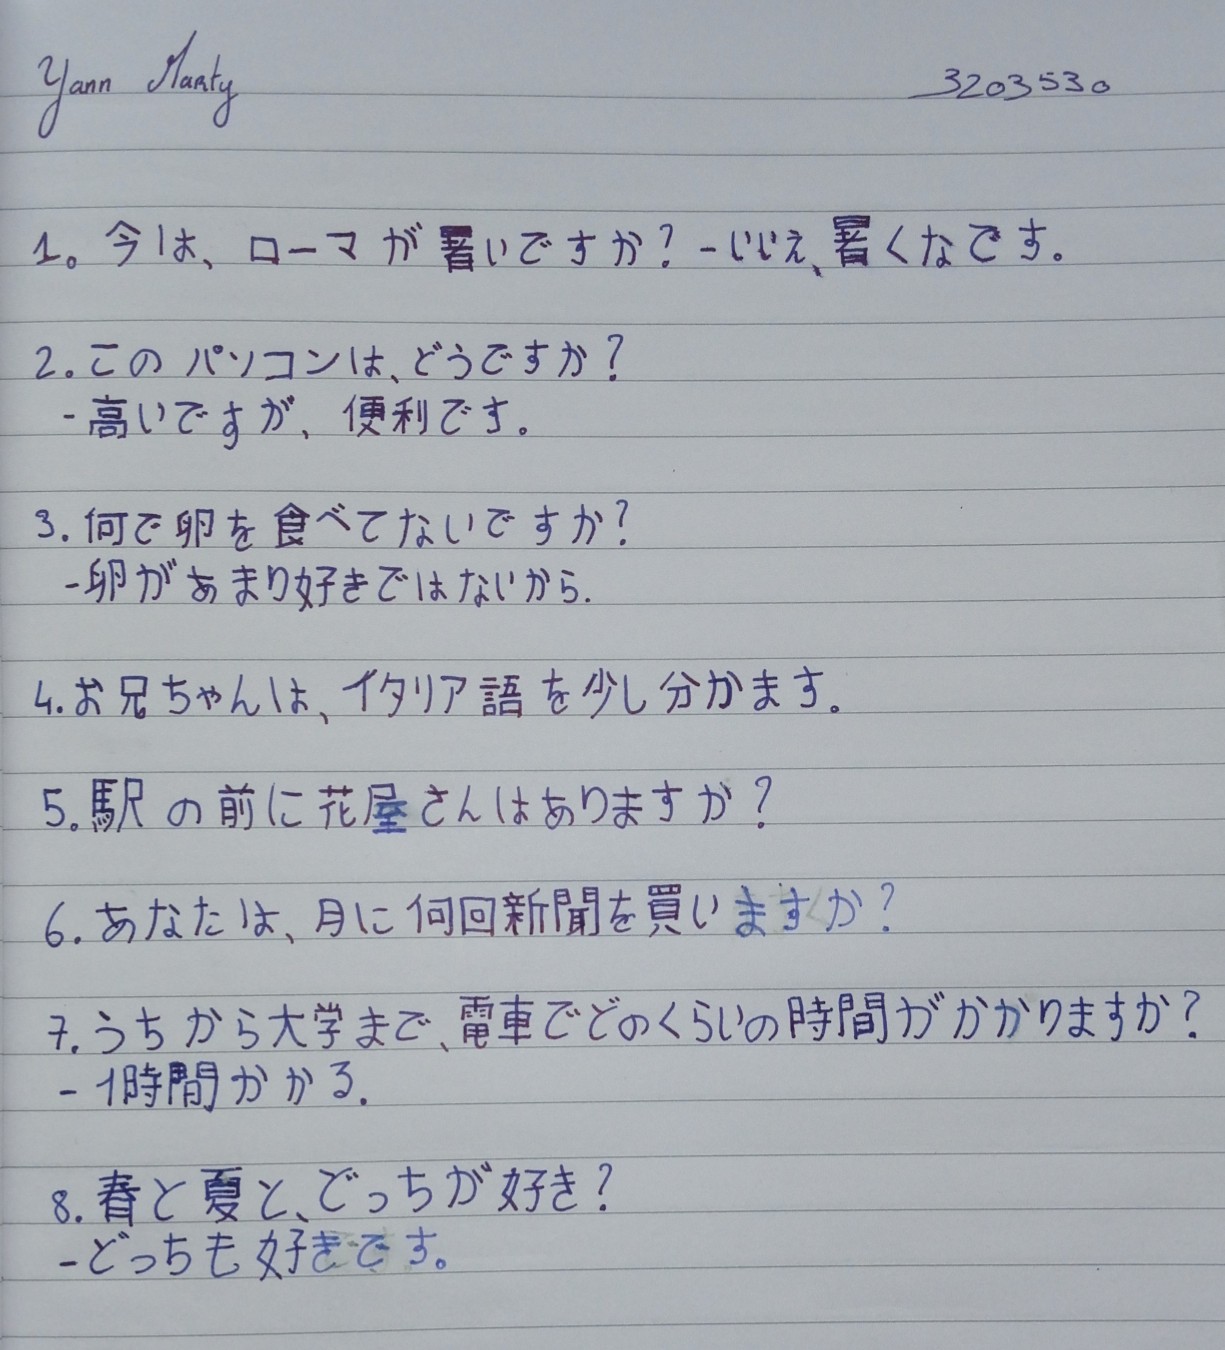 Yann Marty 3203530
1。今は、ローマが暑いですか? - いいえ、暑くなです。
2.このパソコンは、どうですか?
- 高いですが、便利です。
3.何で卵を食べてないですか?
- 卵があまり好きではないから.
4.お兄ちゃんは、イタリア語を少し分かます。
5.駅の前に花屋さんはありますか?
6.あなたは、月に何回新聞を買いますか?
7.うちから大学まで、電車でどのくらいの時間がかかりますか?
- 1時間かかる.
8.春と夏と、どっちが好き?
- どっちも好きです。